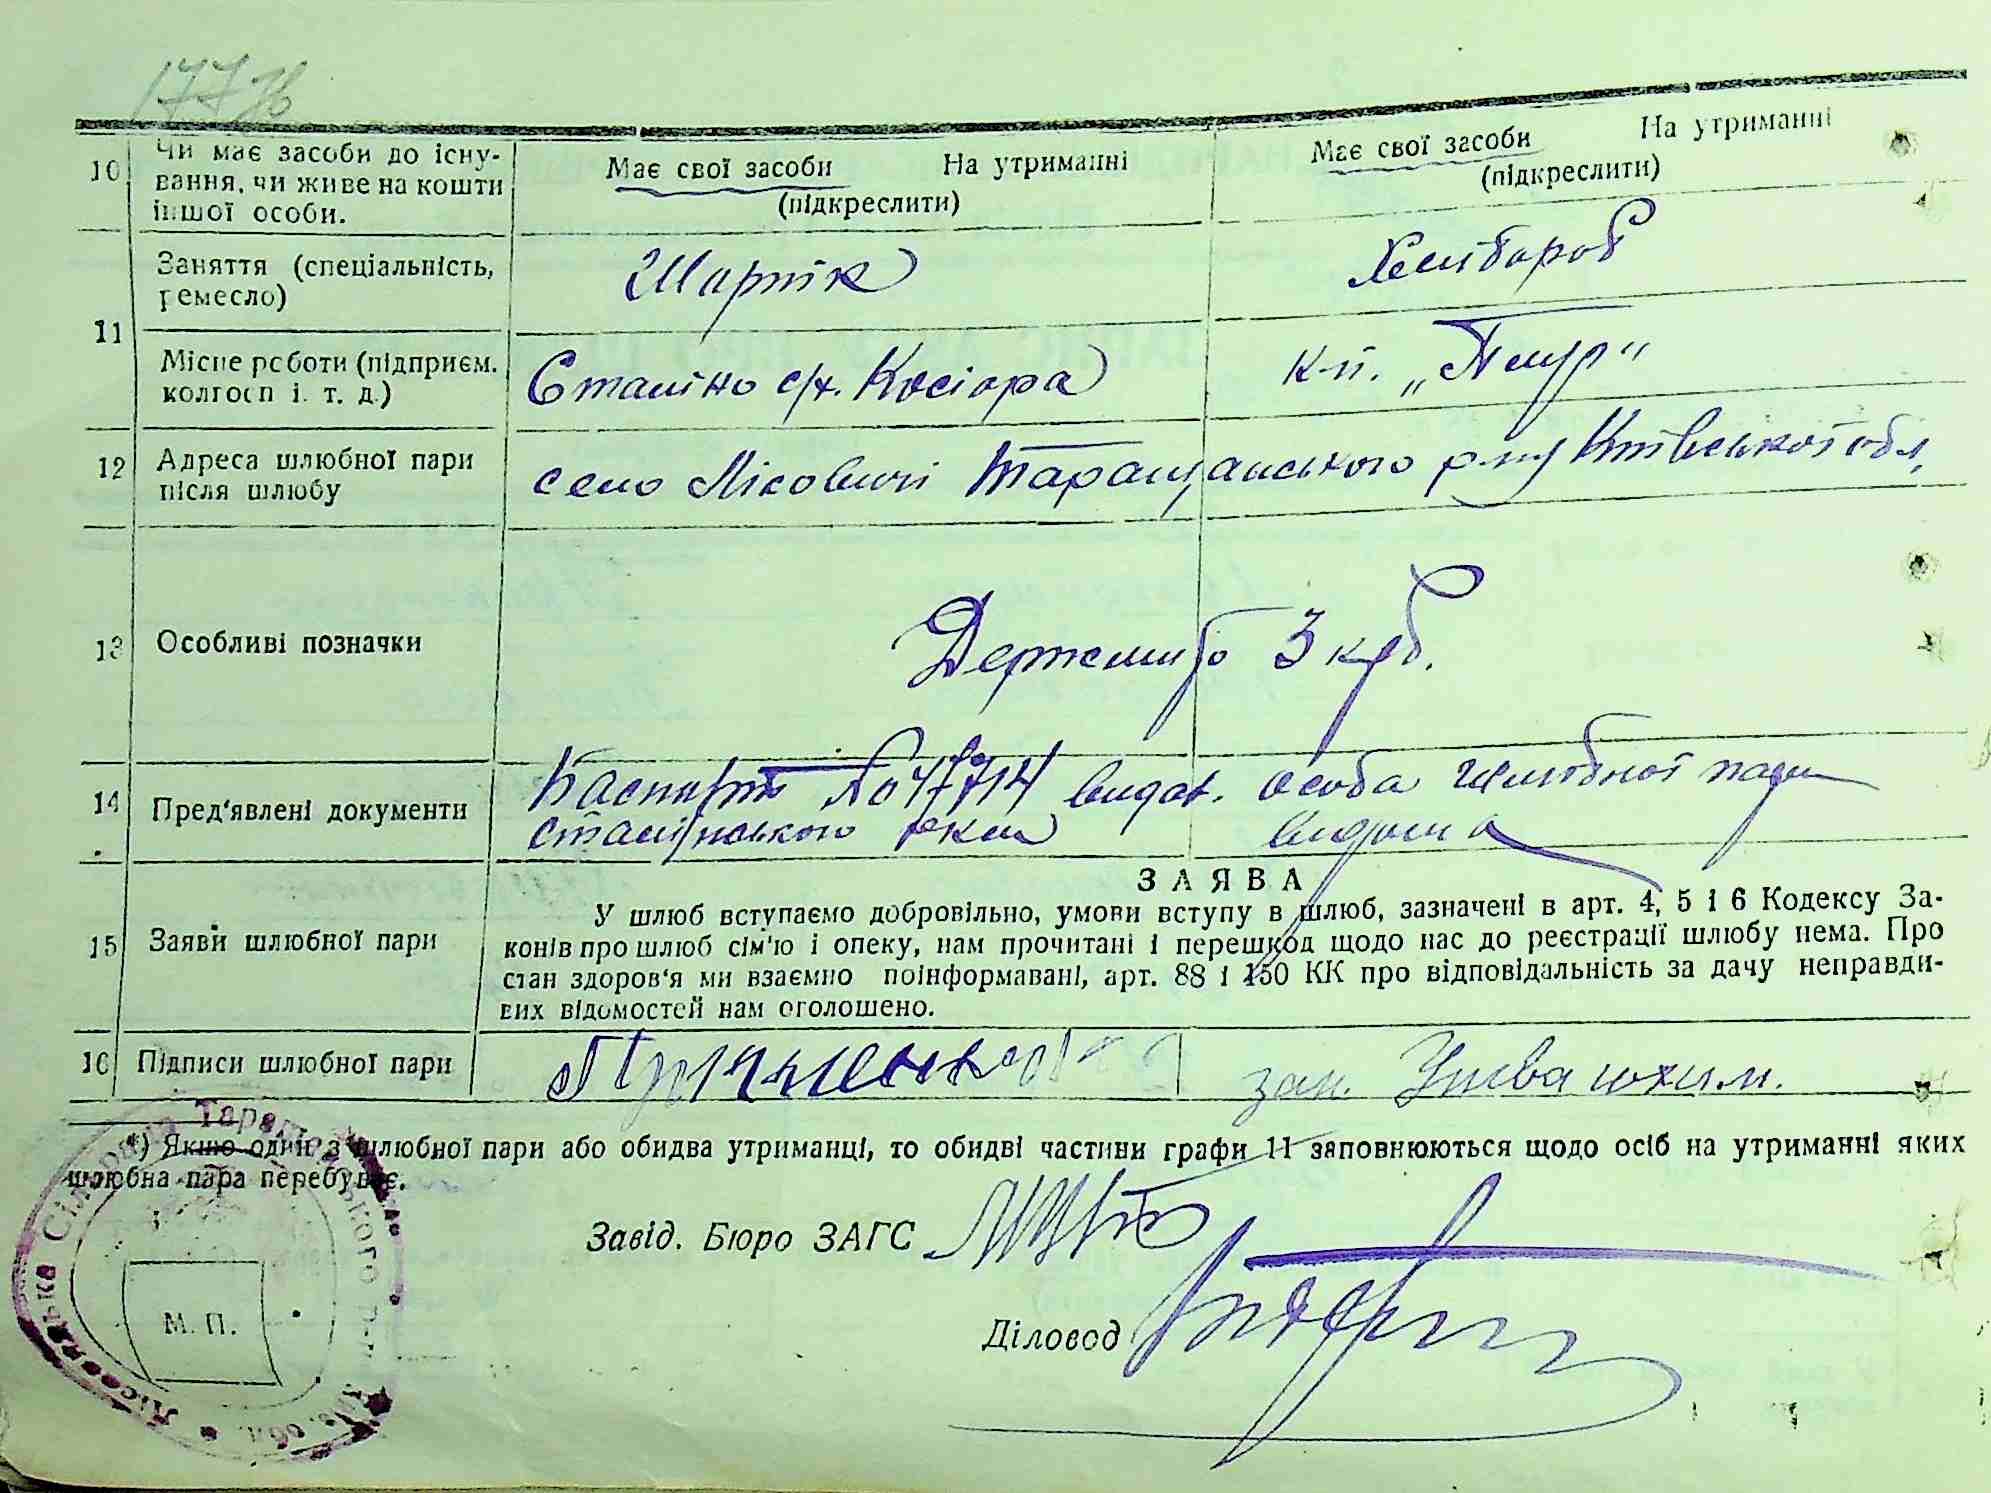 10 Чи має засоби до існу-
вання, чи живе на кошти
іншої особи.
Має свої засоби На утриманні
(підкреслити)
Має свої засоби На утриманні
(підкреслити)
11 Заняття (спеціальність,
ремесло)
Хлібороб
Місце роботи (підприєм.
колгосп і. т. д.)
Сталіно с/х. Косіора
к-п. „
12 Адреса шлюбної пари
після шлюбу
село Лісовичі Таращанського р-ну Київської обл.
13 Особливі позначки
Держмито 3 крб.
14 Пред'явлені документи
Паспорт видан.
Сталінського
особа шлюбної пари
видома
15 Заяви шлюбної пари
ЗАЯВА
У шлюб вступаємо добровільно, умови вступу в шлюб, зазначені в арт. 4, 5 і 6 Кодексу За-
конів про шлюб сім'ю і опеку, нам прочитані і перешкод щодо нас до реєстрації шлюбу нема. Про
стан здоров'я ми взаємно поінформавані, арт. 88 і 150 КК про відповідальність за дачу неправди-
вих відомостей нам оголошено.
16 Підписи шлюбної пари
*) Якшо один з шлюбної пари або обидва утриманці, то обидві частини графи 11 заповнюються щодо осіб на утриманні яких
шлюбна пара перебуває.
Завід. Бюро ЗАГС
Діловод
М. П.